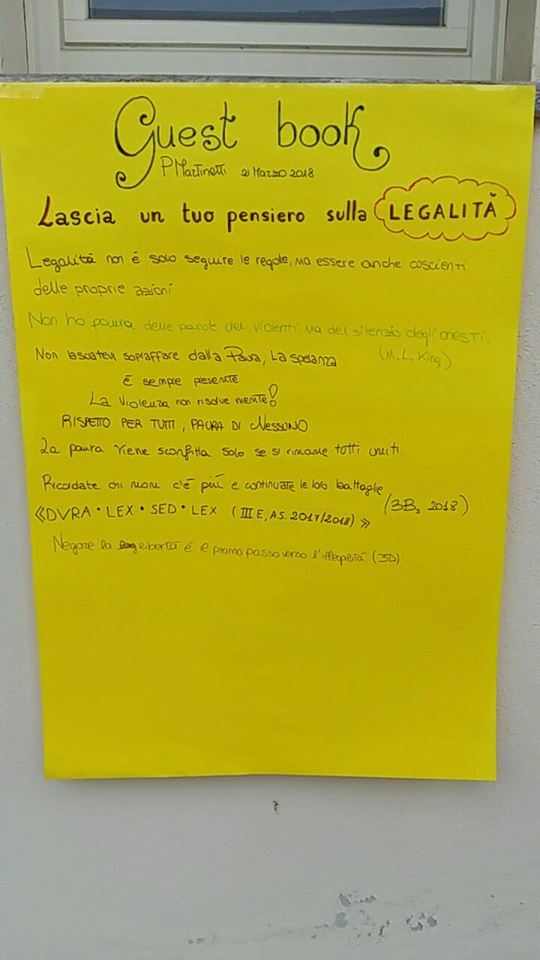 Guest book
P. Martinetti 21 Marzo 2018
Lascia un tuo pensiero sulla LEGALITÀ
Legalità non è solo seguire le regole, ma essere anche coscienti
delle proprie azioni
Non ho paura delle parole dei violenti, ma del silenzio degli onesti.
(M. L. King)
Non lasciatevi sopraffare dalla Paura, La speranza
è sempre presente
La Violenza non risolve niente!
RISPETTO PER TUTTI, PAURA DI NESSUNO
La paura viene sconfitta solo se si rimane tutti uniti.
Ricordate chi non c'è più e continuate le loro battaglie
(3Bs 2018)
《DVRA • LEX • SED • LEX (III E, A.S. 2017/2018)》
Negare la libertà é il primo passo verso l'illegalità (3D)